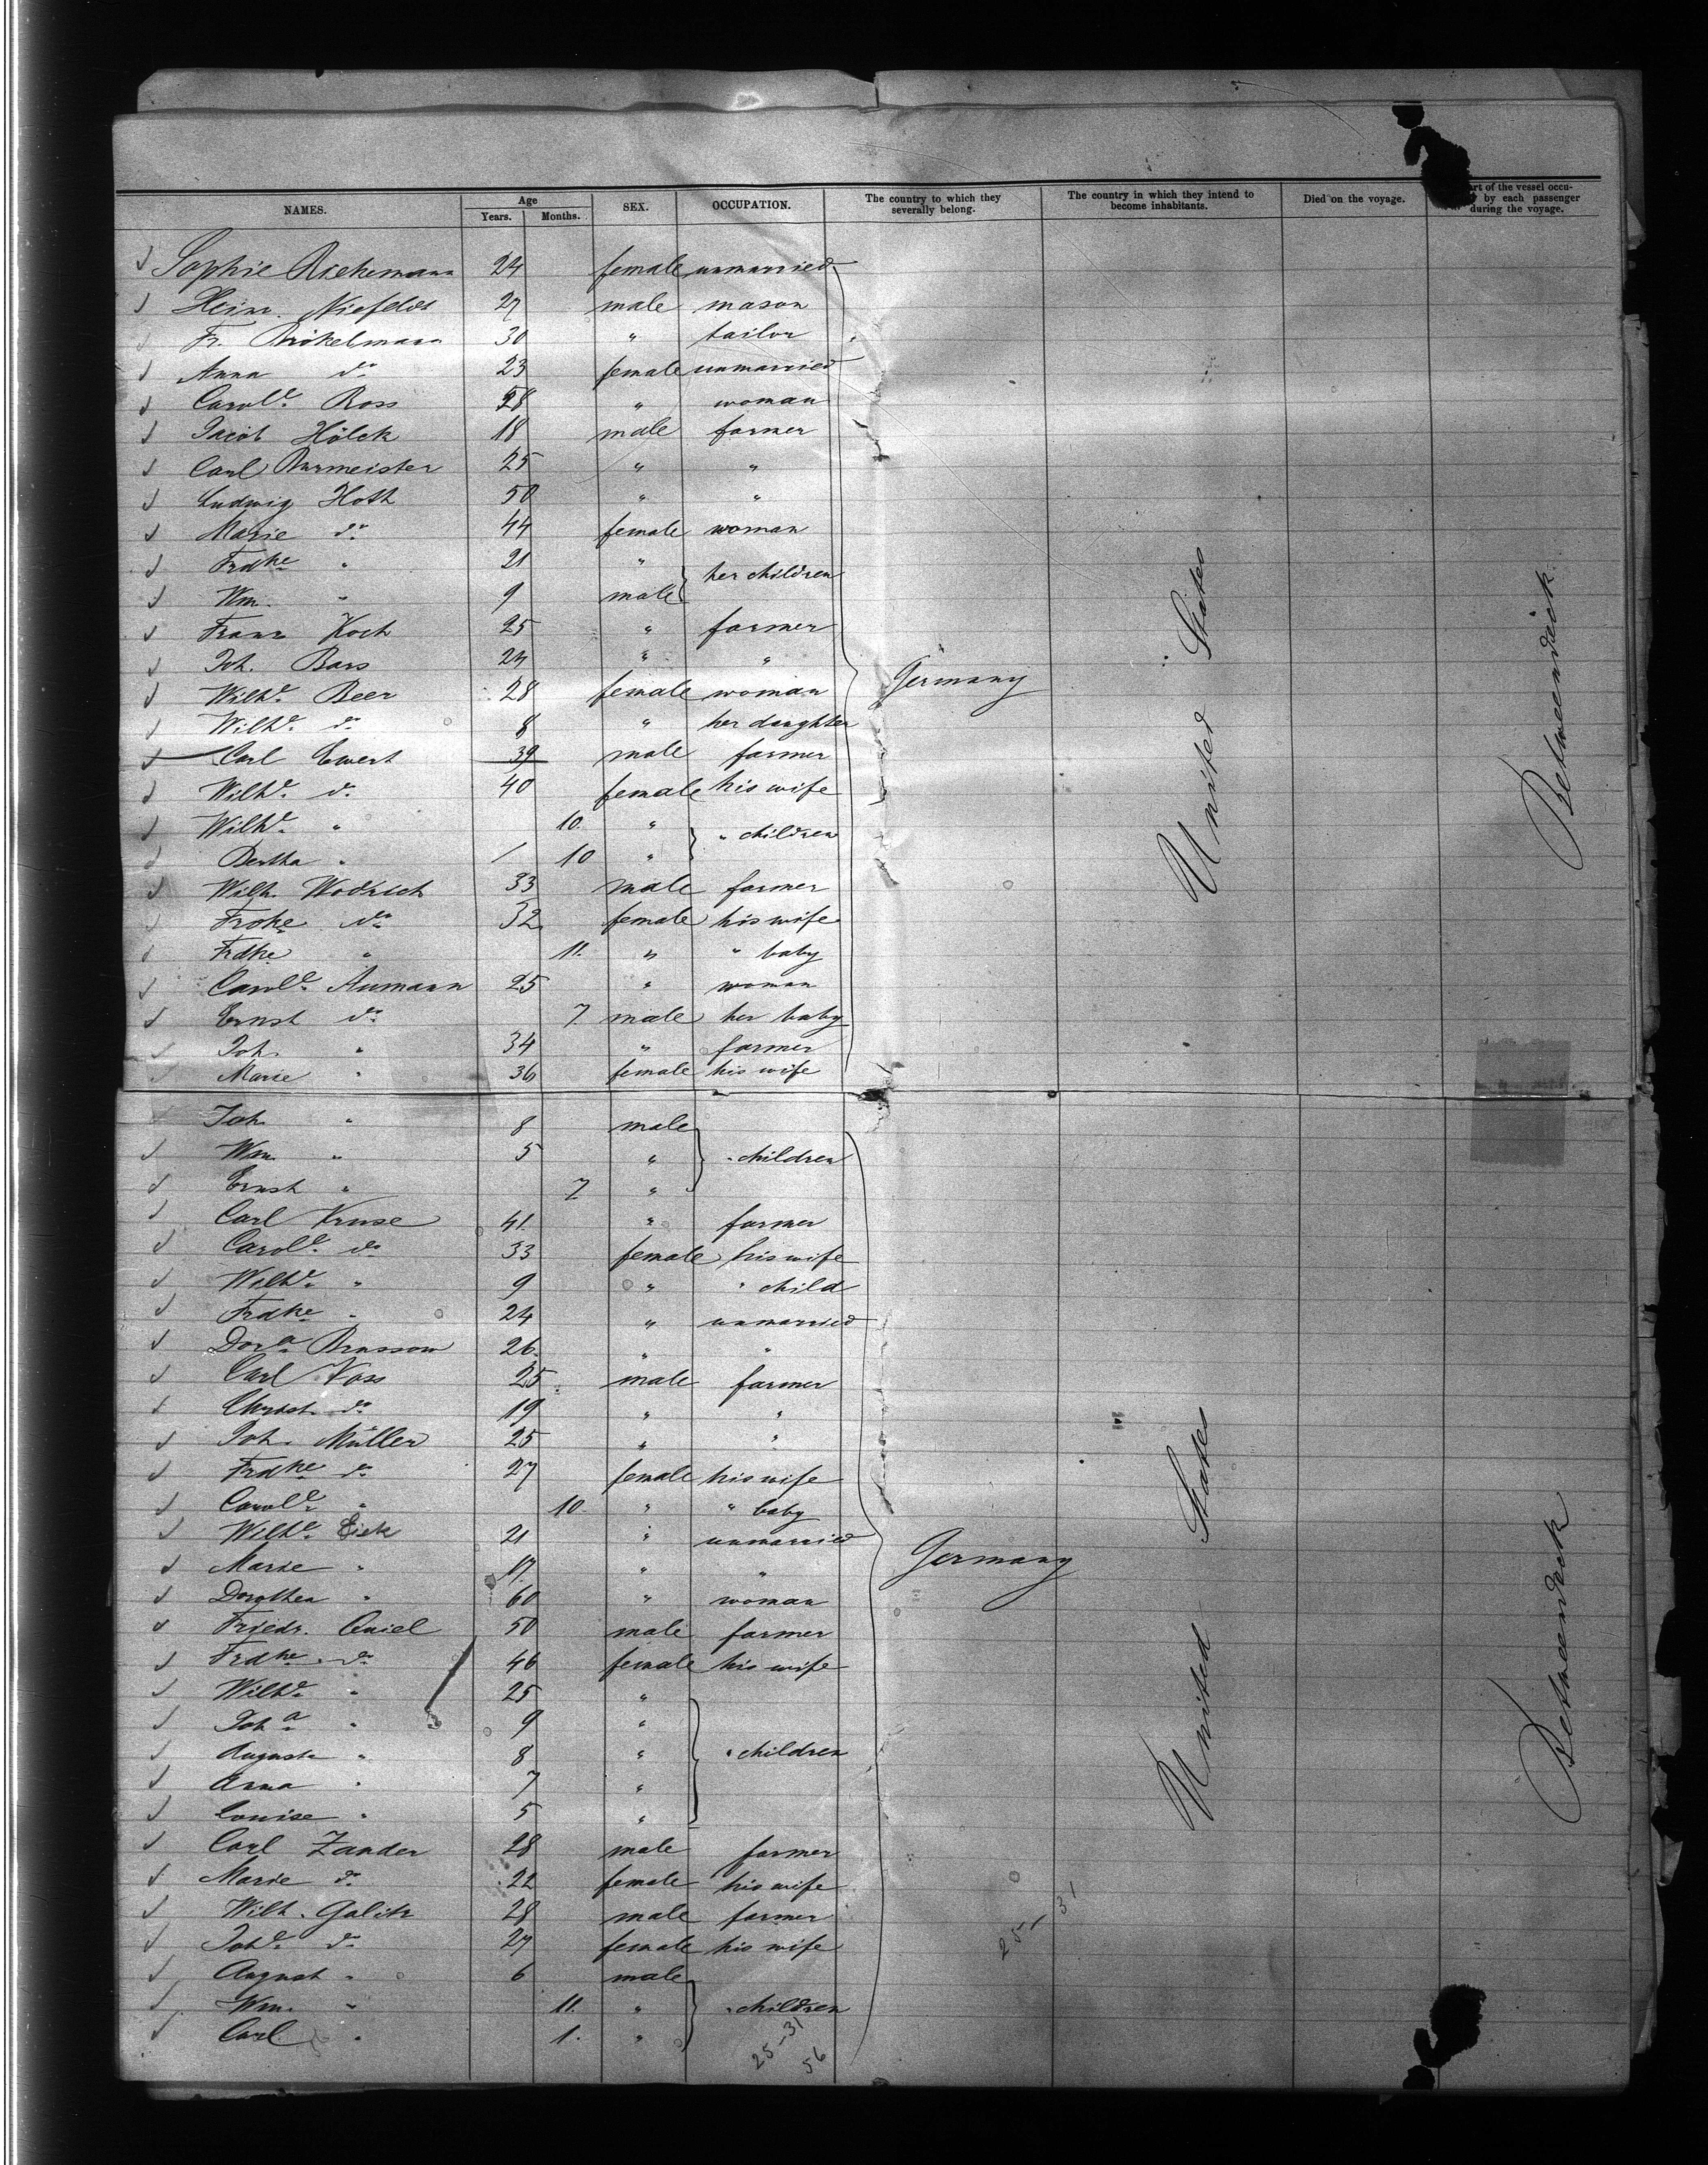 NAMES. Age Years. Months. SEX. OCCUPATION. The country to which they severally belong. The country in which they intend to become inhabitants. Died on the voyage. art of the vessel occu- by each passenger during the voyage.
Sophie Riekemann 24 female unmarried
Heinr. Niefeldt 27 male mason
Fr. Brökelmann 30 " tailor
Anna do 23 female unmarried
Carole. Ross 58 " woman
Jacob Hölck 18 male farmer
Carl Burmeister 25 " "
Ludwig Hoth 50 " "
Marie do 44 female woman
Frdke " 21 " her children
Wm. " 9 male
Franz Koch 25 " farmer
Joh. Bars 24 " "
Wilhe. Beer 28 female woman
Wilhe. do 8 " her daughter
Carl Ewert 39 male farmer
Wilhe. do 40 female his wife
Wilhe. " 10. " " children
Bertha " 1 10 "
Wilh. 33 male farmer
Frdke do 32 female his wife
Frdke " 11. " " baby
Carole. Aumann 25 " woman
Ernst do 7. male her baby
Joh. " 34 " farmer
Marie " 36 female his wife
Germany
United States
Betweendeck
Joh. " 8 male
Wm. " 5 " " children
Ernst " 7 "
Carl Kruse 41. " farmer
Carole. do 33 female his wife
Wilhe. " 9 " " child
Frdke " 24 " unmarried
Dora Brussow 26. " "
Carl Voss 25. male farmer
Christ. do 19 " "
Joh. Müller 25 " "
Frdke do 27 female his wife
Carole. " 10. " " baby
Wilhe. Eick 21 " unmarried
Marie " 17. " "
Dorothea " 60 " woman
Friedr. Quiel 50 male farmer
Frdke. do 46 female his wife
Wilhe. " 25 "
Joha " 9 "
Auguste " 8 " " children
Anna " 7 "
Louise " 5 "
Carl Zander 28 male farmer
Marie do 22 female his wife
Wilh. Galitz 28 male farmer
Johe. do 27 female his wife
August " 6 male
Wm. " 11. " " children
Carl " 1. "
Germany
United States
Betweendeck
25-31
25-31
56